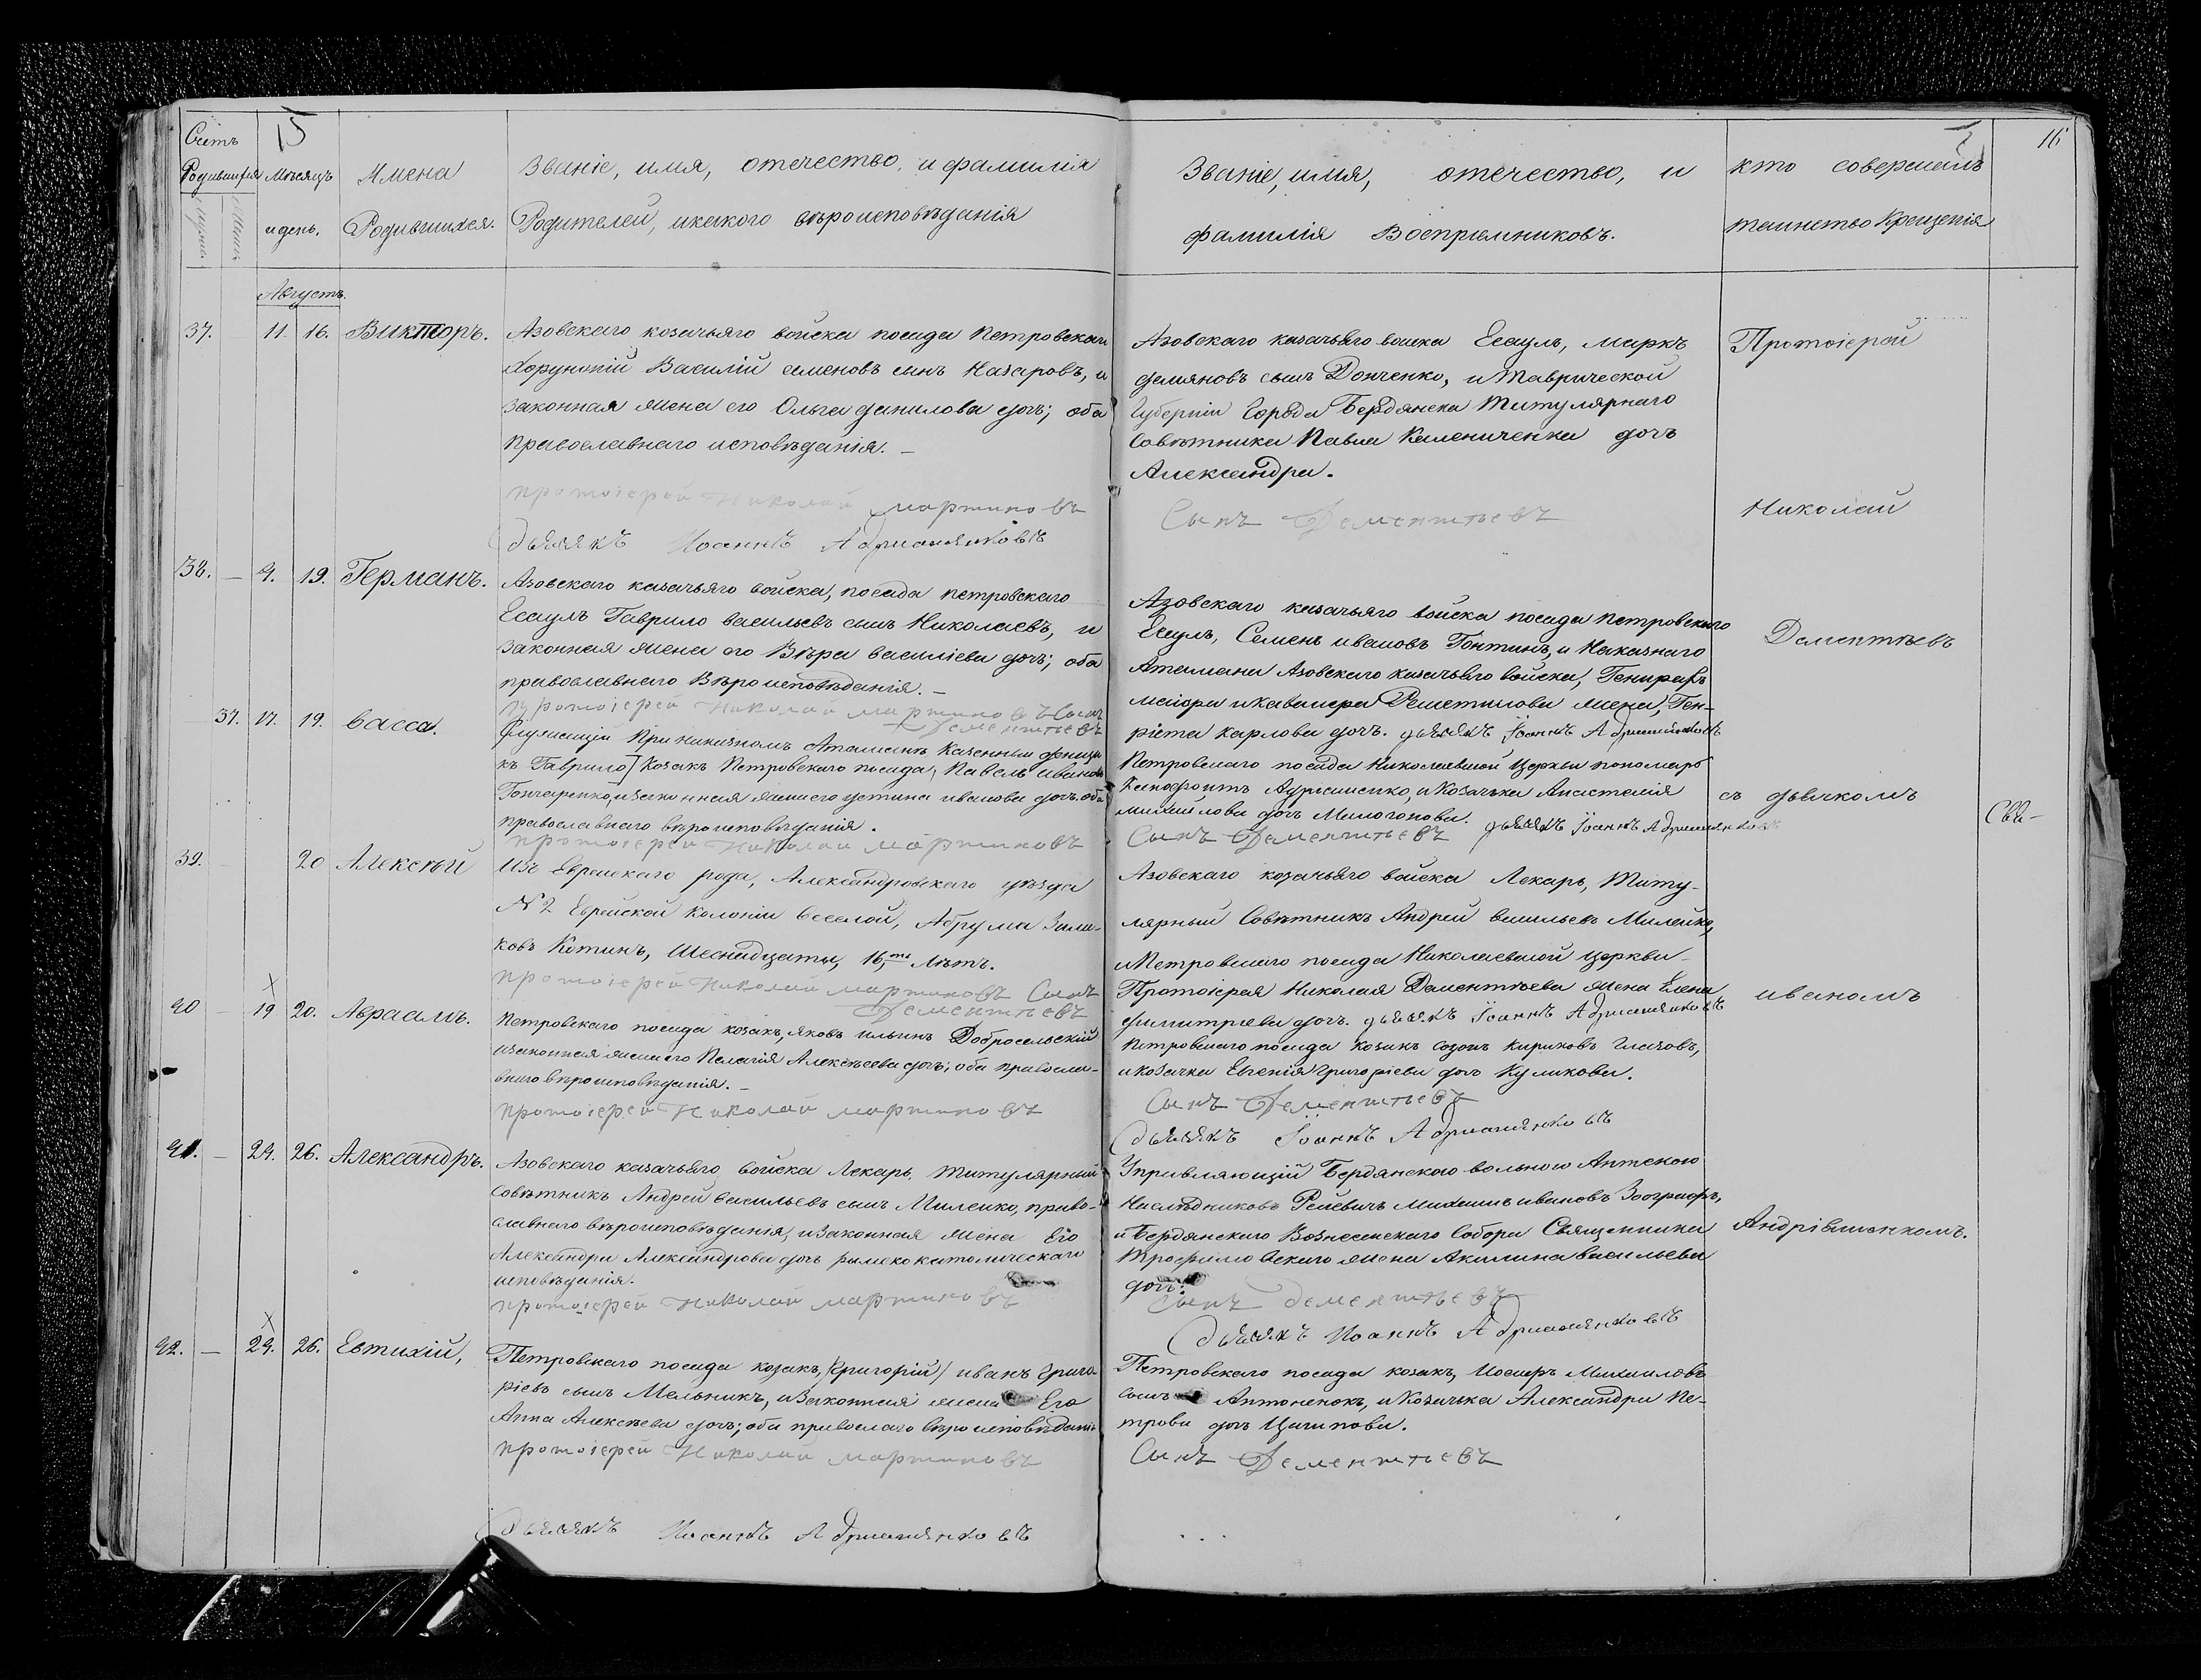 15
16
Счетъ
Родившихся
Мѣсяцъ
и день.
Имена
Родившихся.
Званіе, имя, отечество, и фамилія
Родителей, и какого вѣроисповѣданія
Званіе, имя, отечество, и
фамилія Воспріемниковъ.
кто совершалъ
таинство Крещенія
Августъ.
37. 11. 16. Викторъ.
Азовскаго козачьяго войска посада Петровскаго
Хорунжій Василій семеновъ сынъ Назаровъ, и
законная жена его Ольга данилова дочь; оба
православнаго исповѣданія. –
Азовскаго казачьяго войска Есаулъ, маркъ
демяновъ сынъ Донченко, и Таврической
Губерніи Города Бердянска Титулярнаго
Совѣтника Павла Каленниченка дочь
Александра.
протоіерей Николай мартиновъ
Сынъ Дементьевъ
дьячокъ Иоаннъ Адриашенковъ
Протоіерей
Николай
Дементьевъ
съ дьячкомъ
иваномъ
Андріяшенкомъ.
38. – 9. 19. Германъ.
Азовскаго казачьяго войска, посада петровскаго
Есаулъ Гаврило васильевъ сынъ Николаевъ, и
законная жена его Вѣра василіева дочь; оба
православнаго Вѣроисповѣданія. –
протоіерей Николай мартиновъ Сынъ
Дементьевъ
Азовскаго казачьяго войска посада петровскаго
Есаулъ, Семенъ ивановъ Гонтинъ, и Наказнаго
Атамана Азовскаго казачьяго войска, Генералъ
маіора и кавалера Решетилова жена, Ген-
ріета карлова дочь. дьячокъ Іоаннъ Адриашенковъ
37. 17. 19. Васса.
Служащій При наказномъ Атаманѣ Казенный денщи
къ Гаврило / Козакъ Петровскаго посада, Павелъ иванов
Гончаренко, и законная жена его устина иванова дочь. оба
православнаго вѣроисповѣданія.
протоіерей Николай мартиновъ
Петровскаго посада Николаевской Церкви пономарь
Ксенофонтъ Адриашенко, и Козачка Анастасія
михайлова дочь Милогонова.
Сынъ Дементьевъ дьячокъ Іоаннъ Адриашенковъ
39. 20 Алексѣй
Изъ Еврейскаго рода, Александровскаго уѣзда
№2 Еврейской Колоніи Веселой, Абрума Залм-
ковъ Котинъ, Шеснадцати, 16,ти Лѣтъ.
протоіерей Николай мартиновъ Сынъ
Дементьевъ
Азовскаго козачьяго войска Лекарь, Титу-
лярный Совѣтникъ Андрей васильевъ Милейко,
и Петровскаго посада Николаевской церкви
Протоіерея Николая Дементьева жена Елена
димитріева дочь. дьячокъ Іоаннъ Адриашенковъ
40 – 19 20. Авраамъ.
Петровскаго посада козакъ, яковъ ильинъ Добросельскій
и законная жена его Пелагія Алексѣева дочь; оба правосла-
внаго вѣроисповѣданія. –
протоіерей Николай мартиновъ
Петровскаго посада козакъ созонъ кириковъ Глаховъ,
и козачка Евгенія Григоріева дочь Куликова.
Сынъ Дементьевъ
дьячокъ Іоаннъ Адриашенковъ
41. – 24. 26. Александръ.
Азовскаго казачьяго войска Лекарь, Титулярный
Совѣтникъ Андрей васильевъ сынъ Милейко, право-
славнаго вѣроисповѣданія, и законная жена Его
Александра Александрова дочь римско католическаго
исповѣданія.
протоіерей Николай мартиновъ
Управляющій Бердянскою вольною Аптекою
Наслѣдниковъ Рейсвичъ михаилъ ивановъ Зоографъ,
и Бердянскаго Вознесенскаго Собора Священника
Трофимовскаго жена Акилина васильева
дочь.
Сынъ дементьевъ
дьячокъ Иоаннъ Адриашенковъ
42. – 24. 26. Евтихій,
Петровскаго посада козакъ, /Григорій/ иванъ Григо
ріевъ сынъ Мельникъ, и Законная жена Его
Анна Алексѣева дочь; оба правослаго вѣроисповѣданія
протоіерей Николай мартиновъ
Петровскаго посада козакъ, Иосифъ Михаиловъ
сынъ Антоненокъ, и Козачка Александра Пе-
трова дочь Цыгипова.
Сынъ Дементьевъ
дьячокъ Иоаннъ Адриашенковъ